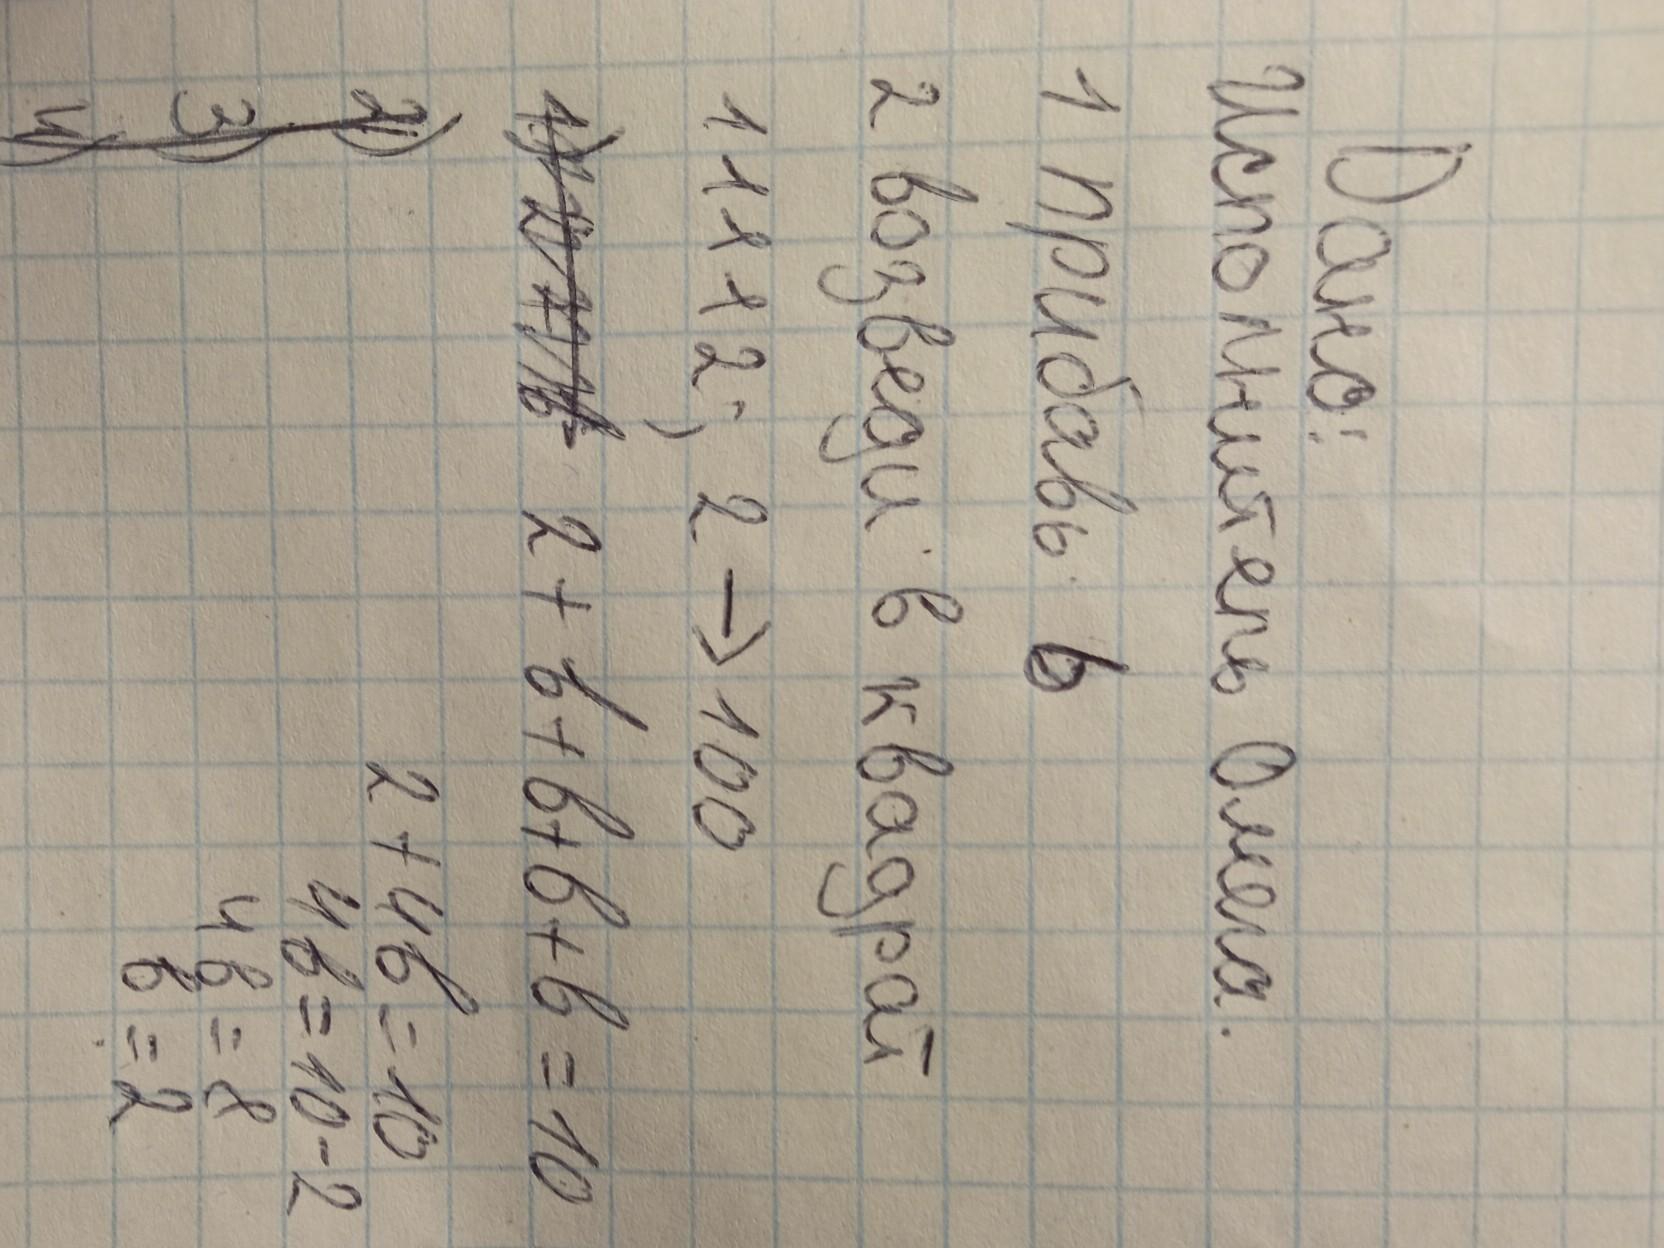 Дано:
Исполнитель Омега.
1 прибавь b
2 возведи в квадрат
11112, 2 → 100
2 + b + b + b + b = 10
2 + 4b = 10
4b = 10 - 2
4b = 8
b = 2
2)
3)
4)